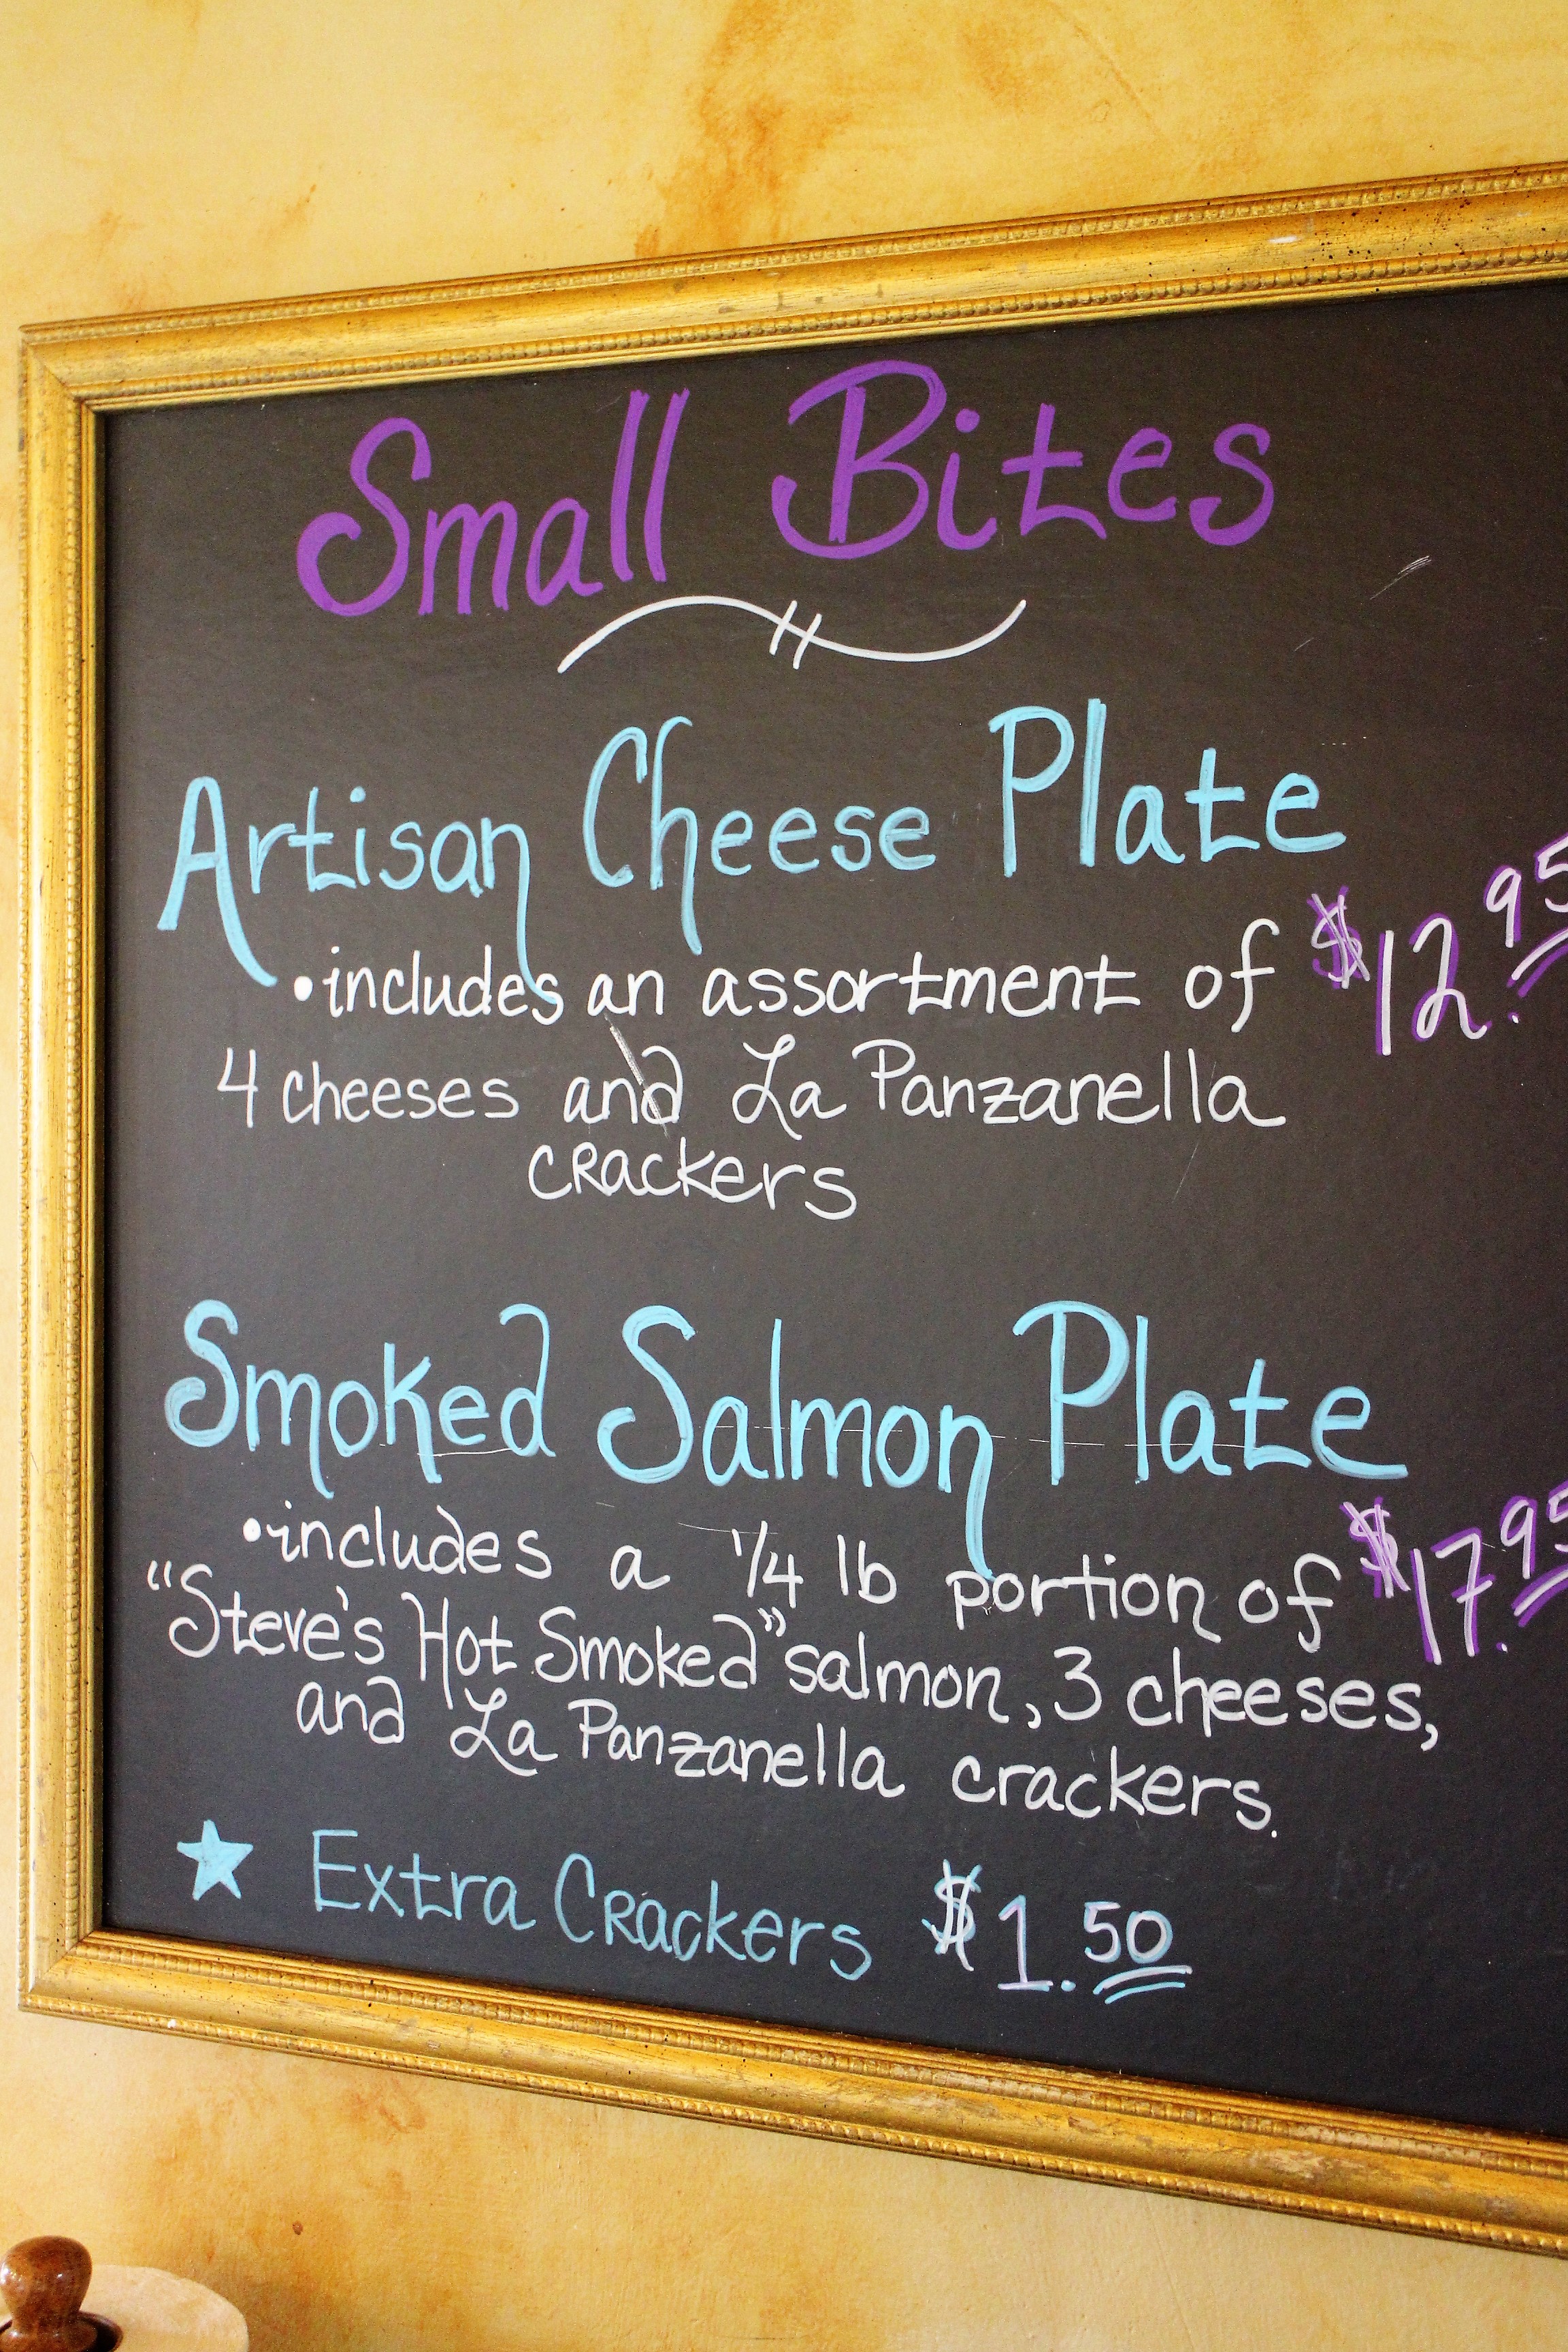 Small Bites
Artisan Cheese Plate
•includes an assortment of $12.95
4 cheeses and La Panzanella
crackers
Smoked Salmon Plate
•includes a 1/4 lb portion of $17.95
"Steve's Hot Smoked" salmon, 3 cheeses,
and La Panzanella crackers.
★ Extra Crackers $1.50